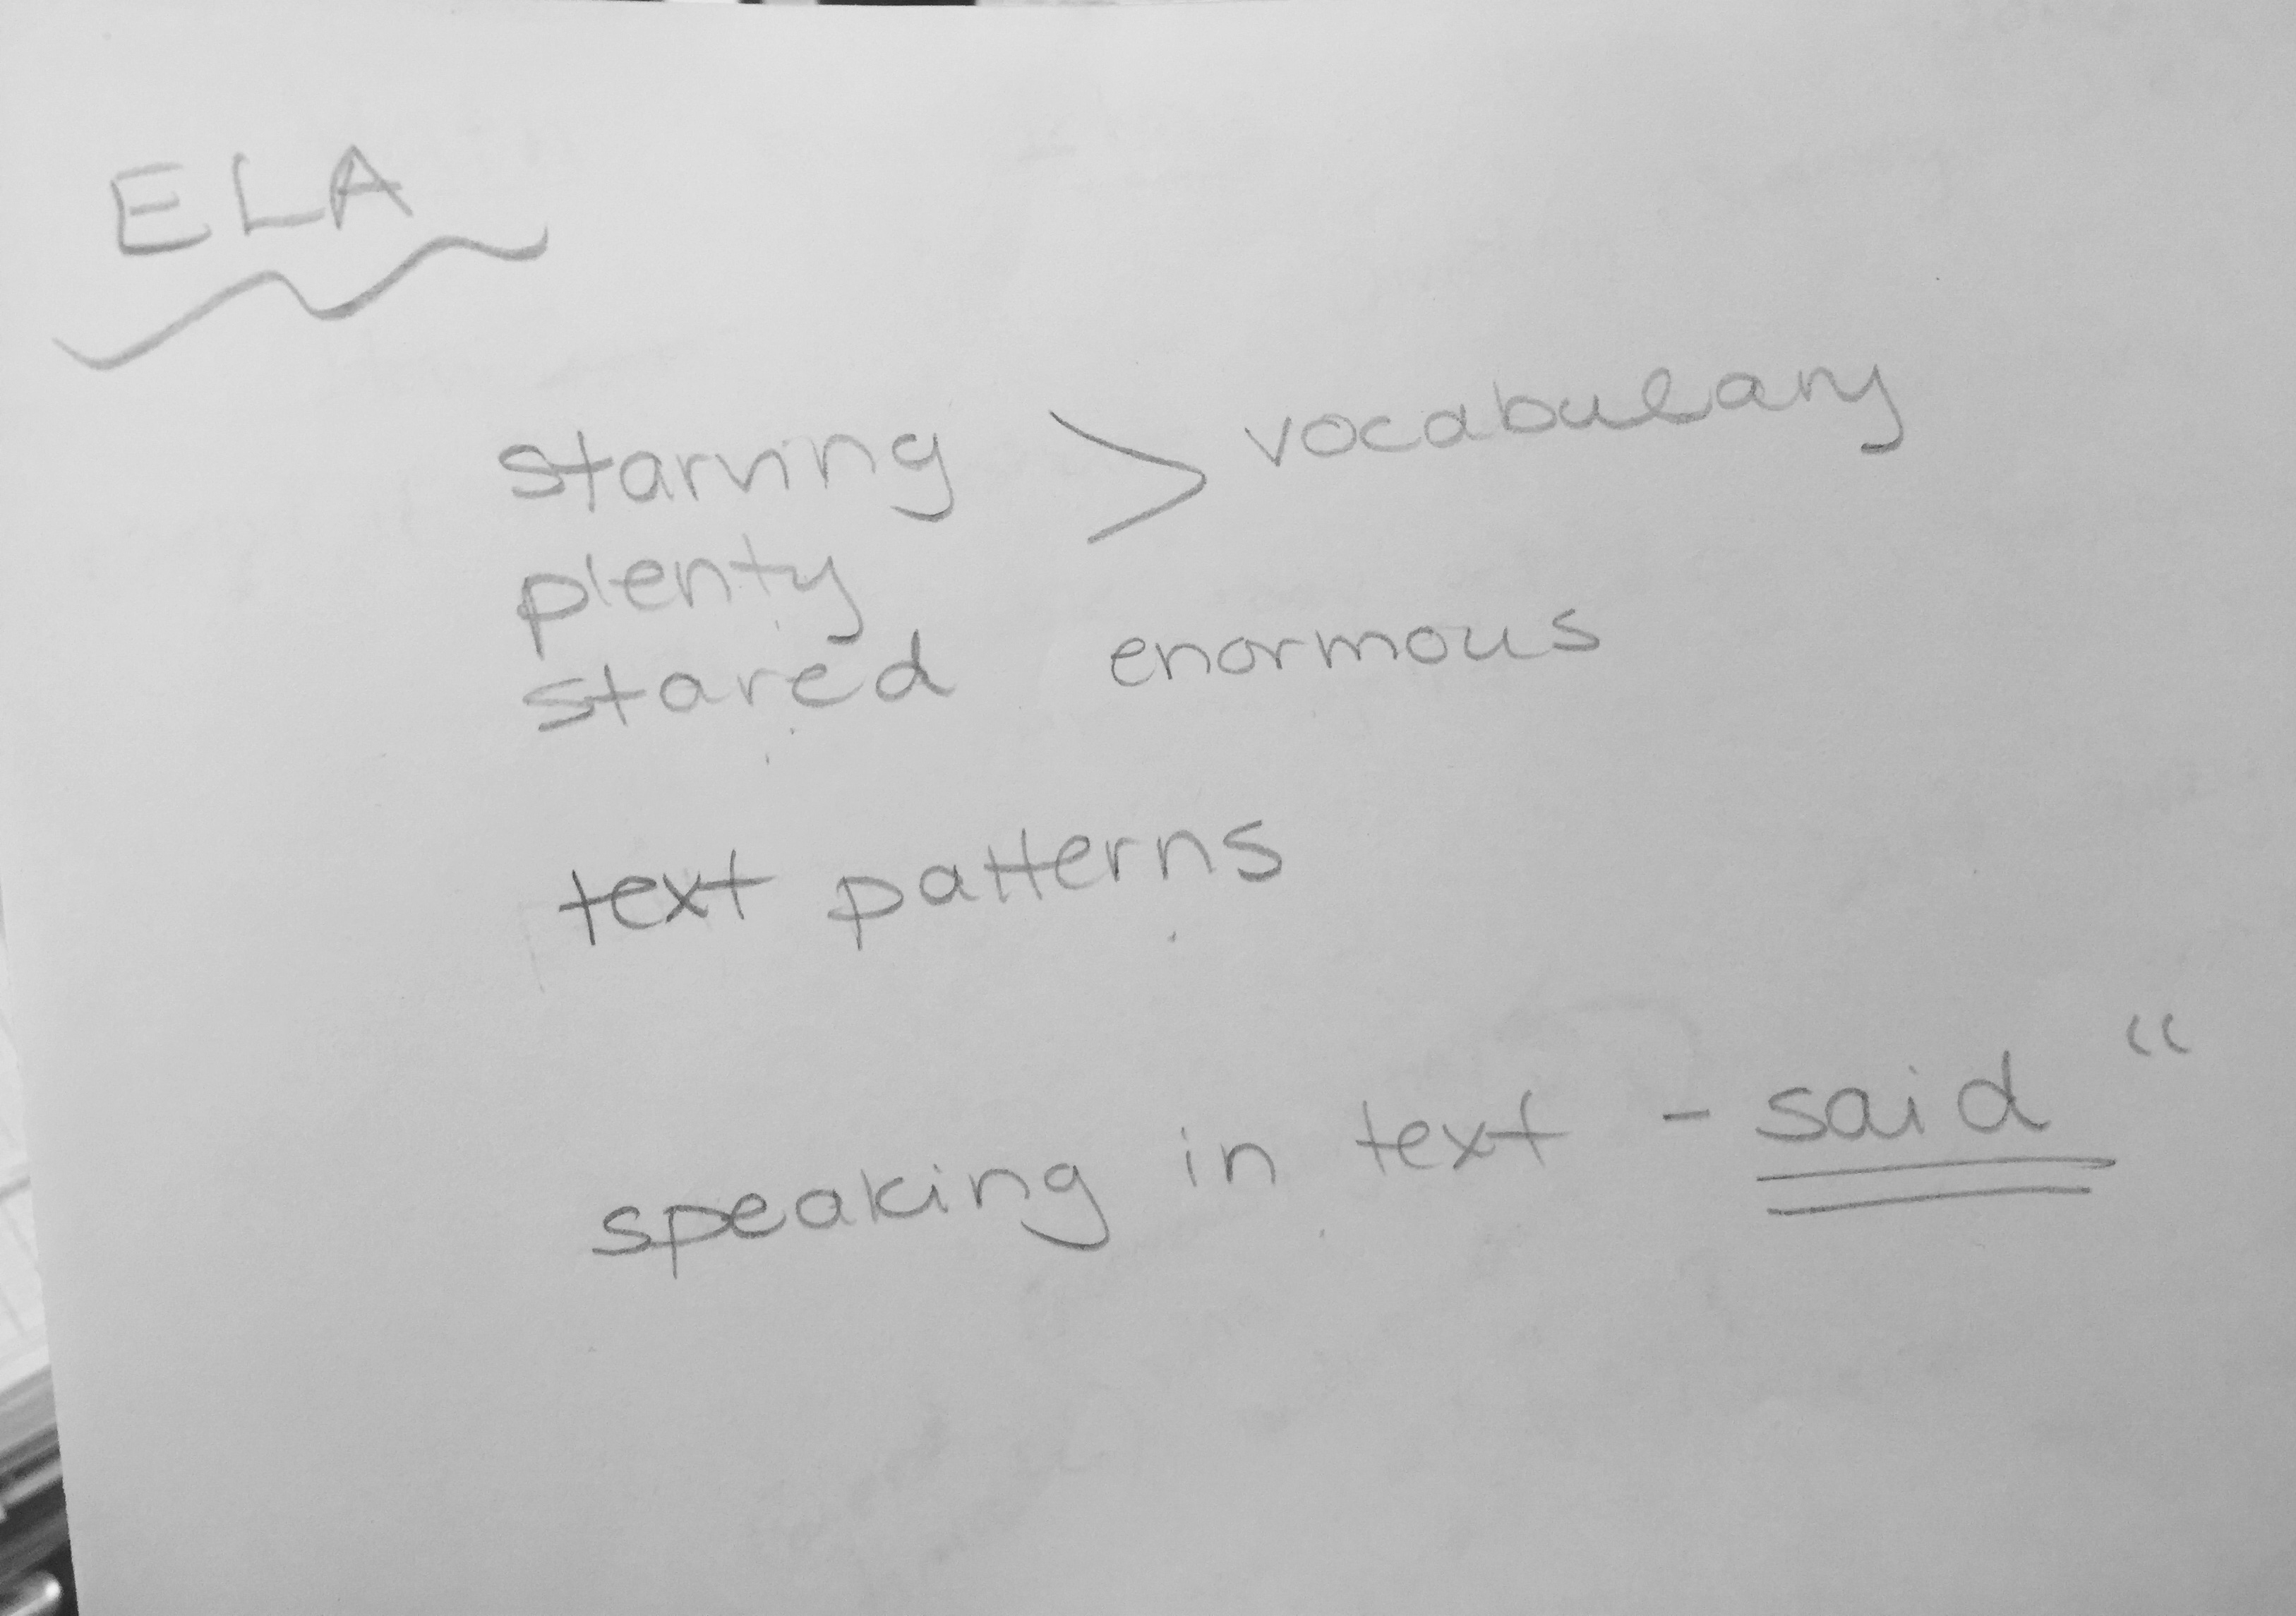 ELA
starving > vocabulary
plenty
stared enormous
text patterns
speaking in text - said “